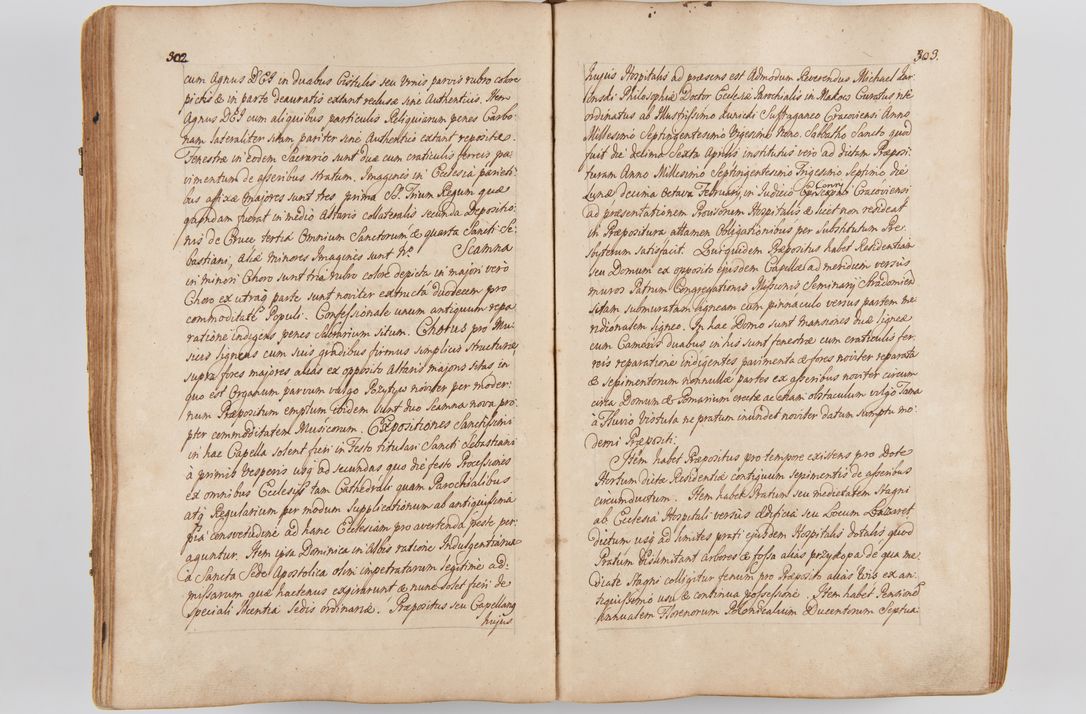 302
cum Agnus DEI in duabus Cistulis seu Urnis parvis rubro colore
pictis & in parte deauratis extant reclusæ sine Authenticis. Item
Agnus DEI cum aliquibus particulis Reliquiarum penes Carbo-
nam lateraliter sitam pariter sine Authentico extant repositæ.
Fenestræ in eodem Sacrario sunt duæ cum craticulis ferreis pa-
vimentum de asseribus stratum. Imagines in Ecclesia parieti-
bus affixæ majores sunt tres prima S. Trium Regum quæ
quondam fuerat in medio Altaris collateralis secunda Depositio-
nis de Cruce tertia Omnium Sanctorum & quarta Sancti Se-
bastiani, aliæ minores Imagines sunt No. Scamna
in minori Choro sunt tria rubro colore depicta in majori verò
Choro ex utraq parte sunt noviter extructa duodecem pro
commoditate Populi. Confessionale unum antiquum repa-
ratione indigens penes Sacrarium situm. Chorus pro Mu-
sicis ligneus cum suis gradibus firmus simplicis structuræ,
supra fores majores alias ex opposito Altaris majoris sitas in
quo est Organum parvum vulgo Pozytyw noviter per moder-
num Præpositum emptum ibidem sunt duo Scamna nova pro-
pter commoditatem Musicorum. Expositiones Sanctissimi
in hac Capella solent fieri in Festo titulari Sancti Sebastiani
à primis Vesperis usq ad secundas quo die festo Processiones
ex omnibus Ecclesijs tam Cathedrali quam Parochialibus
atq Regularium per modum Supplicationum ab antiquissima
pia consvetudine ad hanc Ecclesiam pro avertenda peste per-
aguntur. Item ipsa Dominica in Albis ratione Indulgentiarum
à Sancta Sede Apostolica olim impetratarum legitime ad-
missarum quæ hactenus exspirarunt & nunc solet fieri de
speciali licentia Sedis ordinariæ. Præpositus seu Capellanus
hujus
303.
hujus Hospitalis ad præsens est Admodum Reverendus Michael
Philosophiæ Doctor Ecclesiæ Parochialis in Makocz Curatus
ordinatus ab Illustrissimo Kunicki Suffraganeo Cracoviensi Anno
Millesimo Septingentesimo Trigesimo Sabbatho Sancto quod
fuit die decima Sexta Aprilis institutus vero ad dictam Præposi-
turam Anno Millesimo Septingentesimo Trigesimo Septimo die
Lunæ decima octava Februarij, in Judicio Cracoviensi
ad præsentationem Provisorum Hospitalis & licet non resideat
in Præpositura attamen Obligationibus per Substitutum Pre-
sbyterum satisfacit. Qui quidem Præpositus habet Residentiam
seu Domum ex opposito ejusdem Capellæ ad meridiem versus
muros Patrum Congregationis Missionis Seminarij Stradomien
sitam submuratam ligneam cum pinnaculo versus partem me-
ridionalem ligneo. In hac Domo sunt mansiones duæ ligneæ
cum Cameris duabus in his sunt fenestræ cum craticulis fer-
reis reparatione indigentes pavimenta & fores noviter reparata
& sepimentorum nonnullæ partes ex asseribus noviter circum-
circa Domum & Pomarium erectæ ac etiam obstaculum vulgo Tama
à Fluvio Vistula ne pratum inundet noviter datum sumptu mo-
derni Præpositi.
Item habet Præpositus pro tempore existens pro Dote
Hortum dictæ Residentiæ contiguum sepimentis de asseribus
circumductum. Item habet Pratum seu medietatem Stagni
ab Ecclesia Hospitali versus ædificia seu Locum Lazaret
dictum usq ad limites prati ejusdem Hospitalis dotalis quod
Pratum dislimitant arbores & fossa alias przykopa de qua me-
dietate Stagni colligitur fenum pro Præposito alias Wis ex an-
tiquissimo usu & continua possessione. Item habet Pensionē
annualem Florenorum Polonicalium Ducentorum Septua-